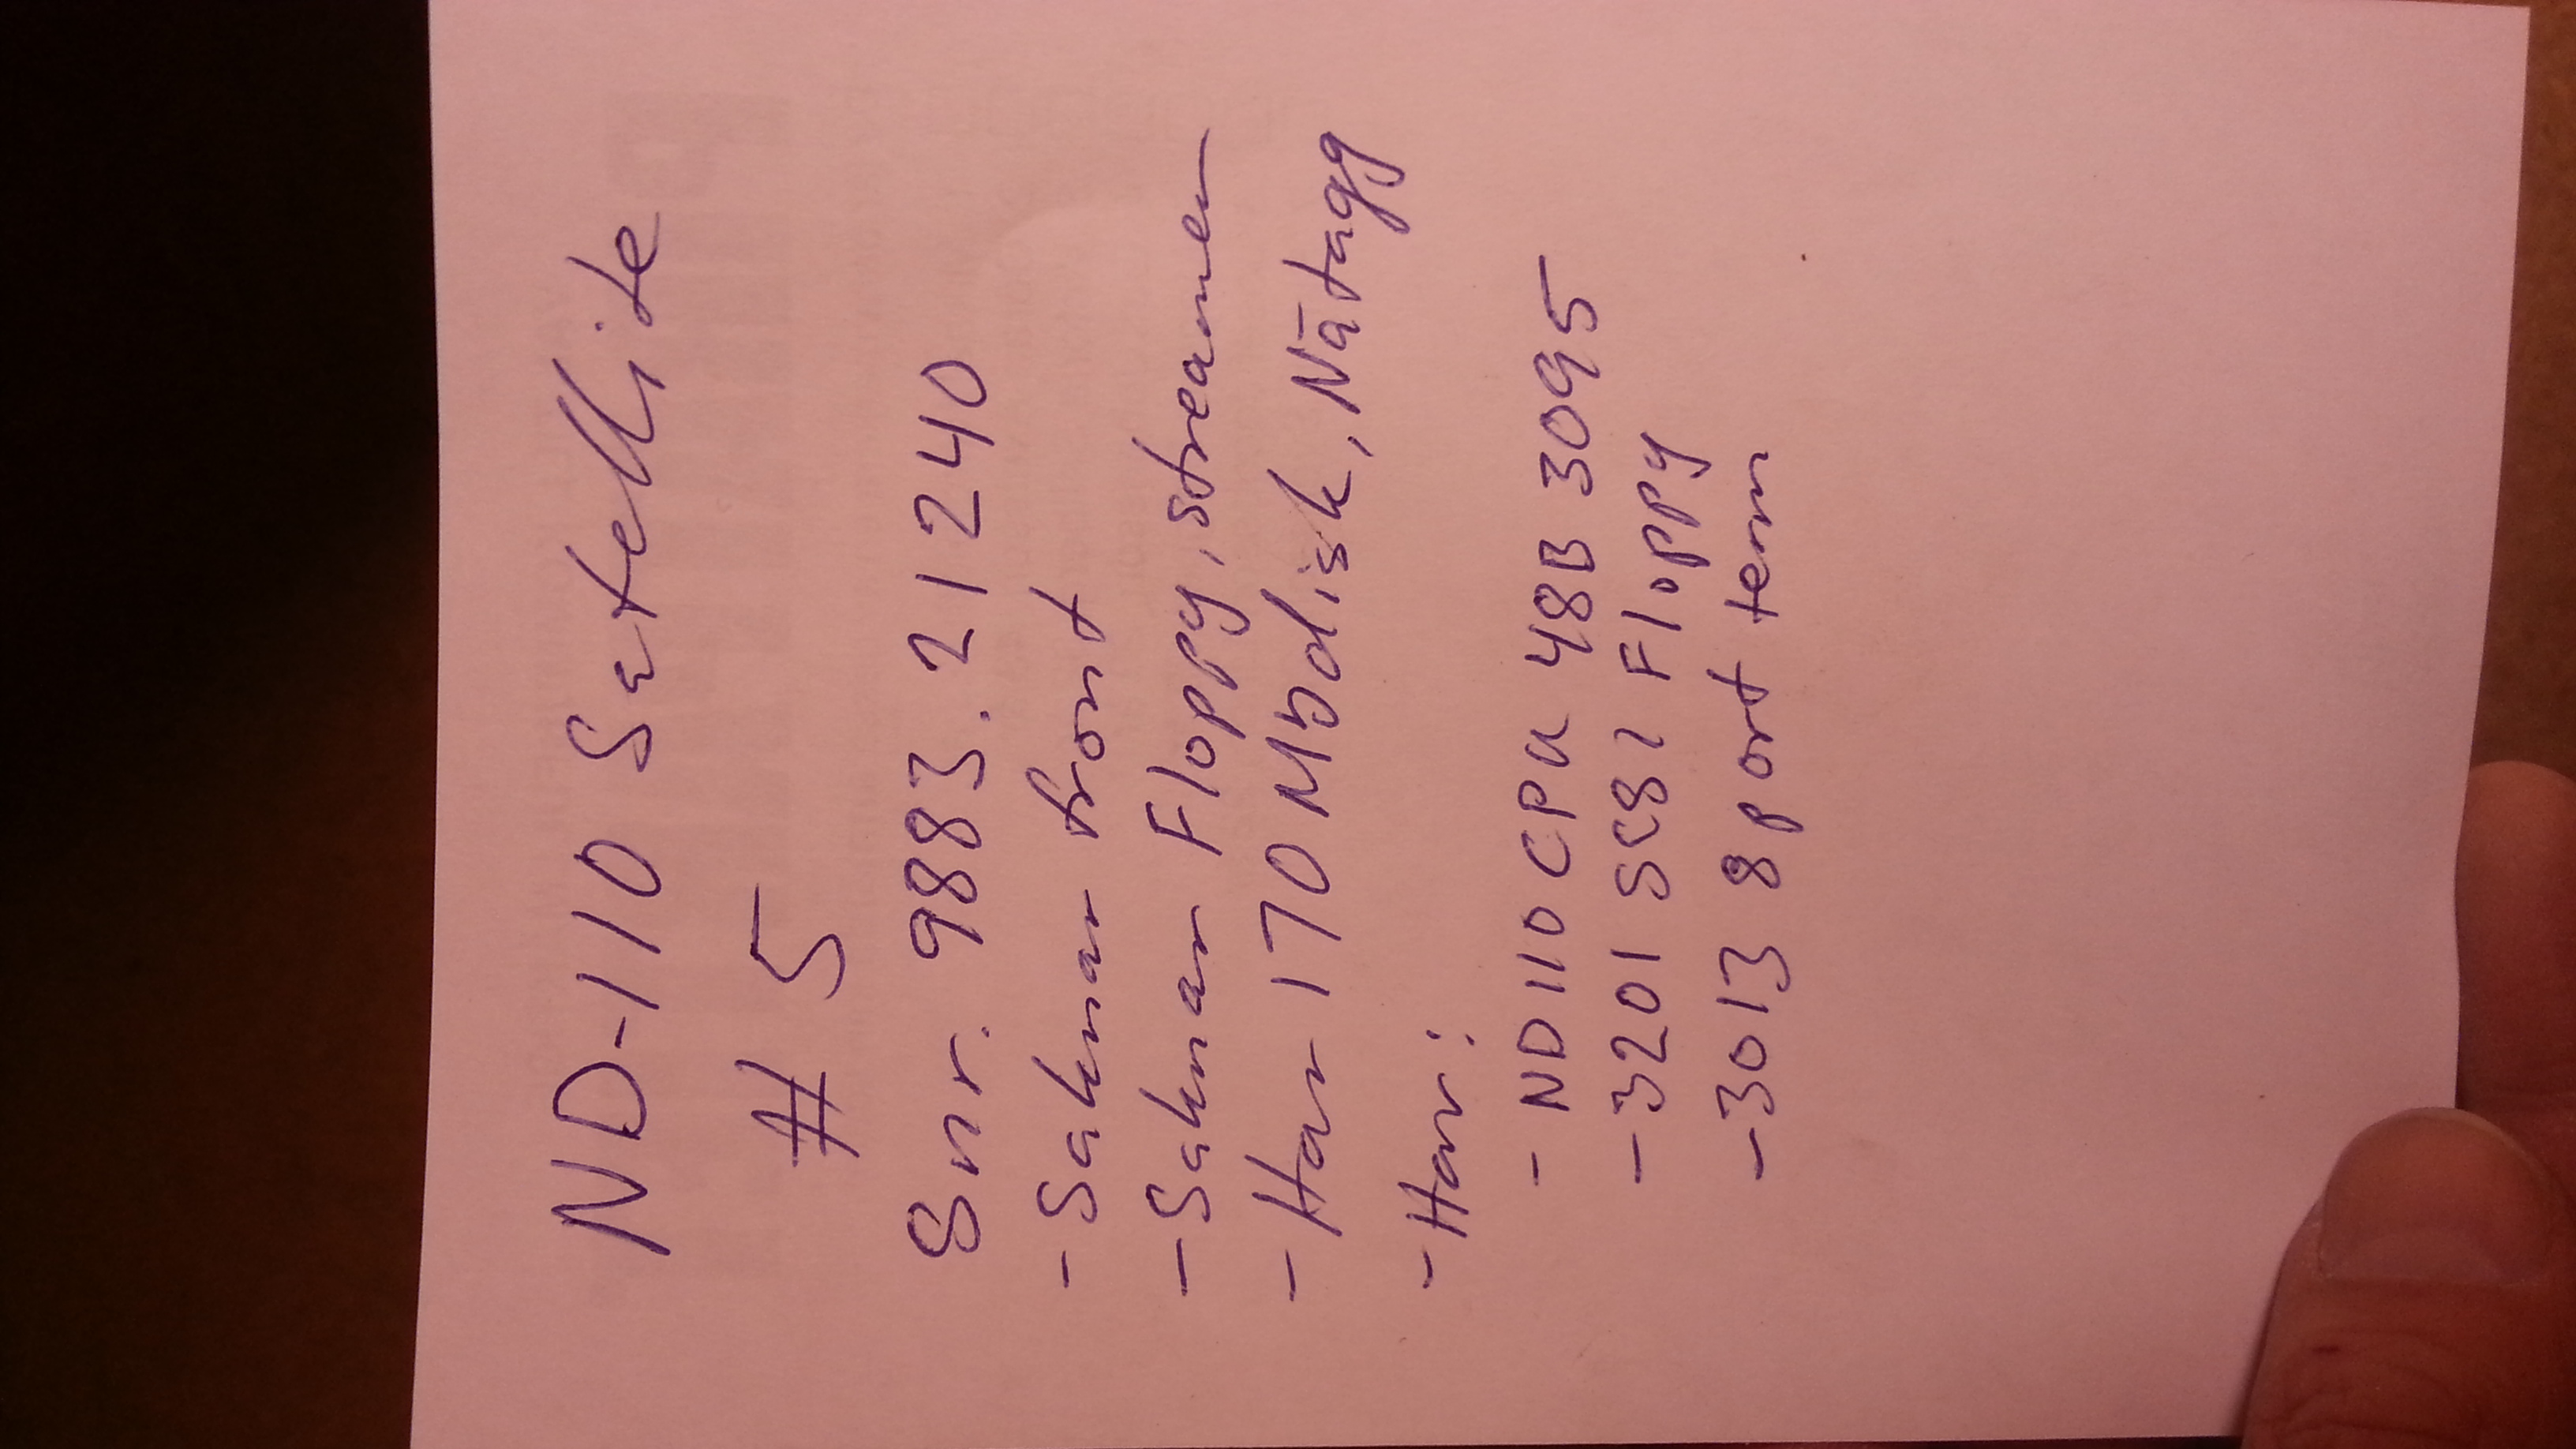 ND-110 Satellite
# 5
Snr. 9883.21240
- Saknar front
- Saknar Floppy, streamer
- Har 170 Mbdisk, Nätagg
- Har:
- ND110 CPU 48B 3095
- 3201 SCSI Floppy
- 3013 8 port term